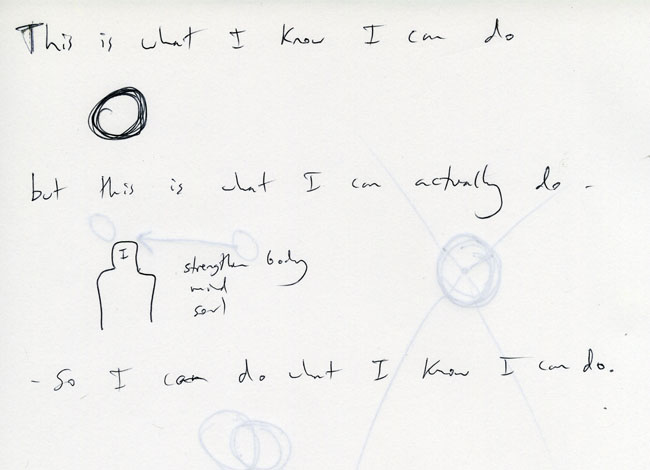 This is what I know I can do
but this is what I can actually do -
I
strengthen body
mind
soul
- So I can do what I know I can do.